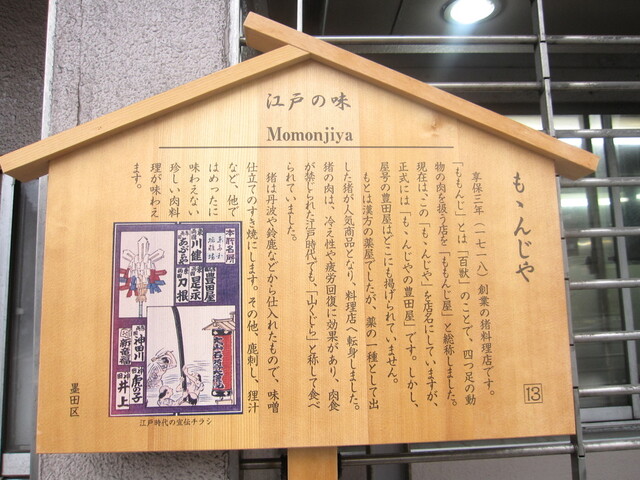 江戸の味
Momonjiya
もゝんじや
享保三年（一七一八）創業の猪料理店です。
「ももんじ」とは「百獣」のことで、四つ足の動
物の肉を扱う店を「ももんじ屋」と総称しました。
現在は、この「もゝんじや」を店名にしていますが、
正式には「もゝんじやの豊田屋」です。しかし、
屋号の豊田屋はどこにも揚げられていません。
もとは漢方の薬屋でしたが、薬の一種として出
した猪が人気商品となり、料理店へ転身しました。
猪の肉は、冷え性や疲労回復に効果があり、肉食
が禁じられた江戸時代でも、「山くじら」と称して食べ
られていました。
猪は丹波や鈴鹿などから仕入れたもので、味噌
仕立てのすき焼にします。その他、鹿刺し、狸汁
など、他で
はめったに
味わえない
珍しい肉料
理が味わえ
ます。
本所名所
川健
豊田屋
昆永
刀根
沖田川
新竜福
虎の子
井上
江戸時代の宣伝チラシ
墨田区
13